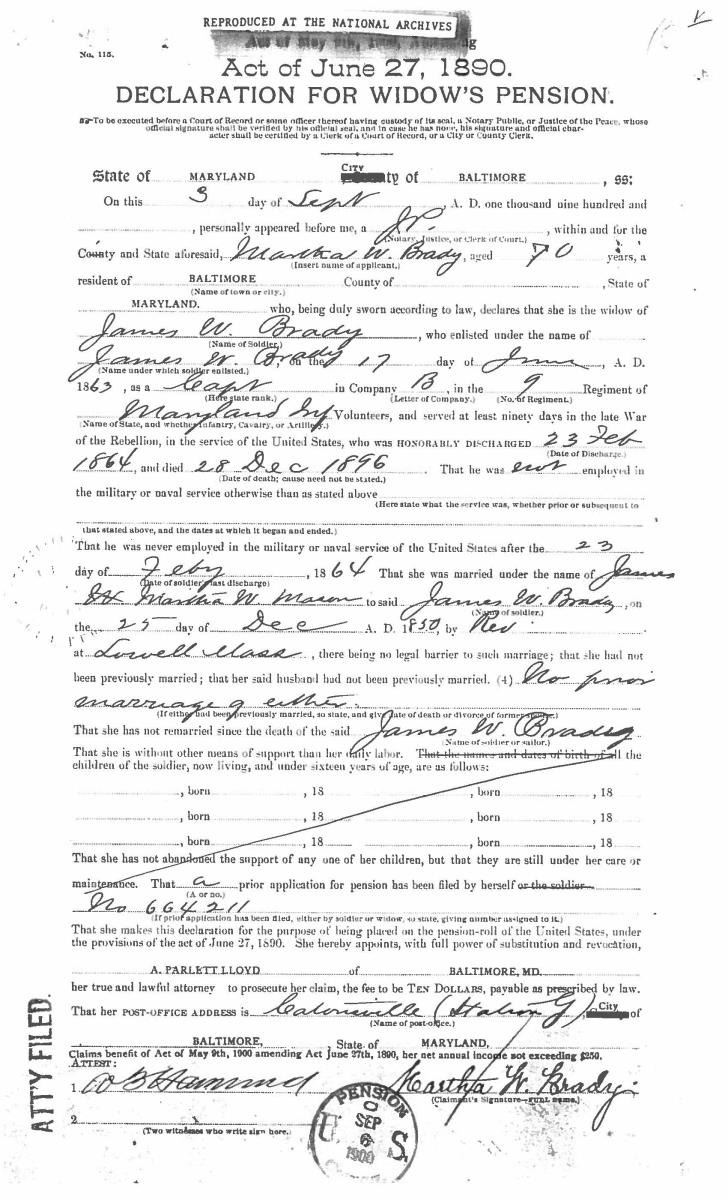 REPRODUCED AT THE NATIONAL ARCHIVES
No. 115.
Act of June 27, 1890.
DECLARATION FOR WIDOW'S PENSION.
To be executed before a Court of Record or some officer thereof having custody of its seal, a Notary Public, or Justice of the Peace, whose
official signature shall be verified by his official seal, and in case he has none, his signature and official char-
acter shall be certified by a Clerk of a Court of Record, or a City or County Clerk.
CITY
State of MARYLAND ty of BALTIMORE, ss:
On this 3 day of Sept, A. D. one thousand nine hundred and
, personally appeared before me, a J.P., within and for the
(Notary, Justice, or Clerk of Court.)
County and State aforesaid, Martha W. Brady, aged 70 years, a
(Insert name of applicant.)
resident of BALTIMORE County of , State of
(Name of town or city.)
MARYLAND. who, being duly sworn according to law, declares that she is the widow of
James W. Brady, who enlisted under the name of
(Name of Soldier.)
James W. Brady, on the 17 day of June, A. D.
(Name under which soldier enlisted.)
1863, as a Capt in Company B, in the 9 Regiment of
(Here state rank.) (Letter of Company.) (No. of Regiment.)
Maryland Inf Volunteers, and served at least ninety days in the late War
(Name of State, and whether Infantry, Cavalry, or Artillery.)
of the Rebellion, in the service of the United States, who was HONORABLY DISCHARGED 23 Feb
(Date of Discharge.)
1864, and died 28 Dec 1896. That he was not employed in
(Date of death; cause need not be stated.)
the military or naval service otherwise than as stated above
(Here state what the service was, whether prior or subsequent to
that stated above, and the dates at which it began and ended.)
That he was never employed in the military or naval service of the United States after the 23
day of Feby, 1864 That she was married under the name of James
(Date of soldier's last discharge)
Martha W. Mason to said James W. Brady, on
(Name of soldier.)
the 25 day of Dec A. D. 1850, by Rev
at Lowell Mass, there being no legal barrier to such marriage; that she had not
been previously married; that her said husband had not been previously married. (4) No prior
marriage of either.
(If either had been previously married, so state, and give date of death or divorce of former spouse.)
That she has not remarried since the death of the said James W. Brady
(Name of soldier or sailor.)
That she is without other means of support than her daily labor. That the names and dates of birth of all the
children of the soldier, now living, and under sixteen years of age, are as follows:
, born , 18 , born , 18
, born , 18 , born , 18
, born , 18 , born , 18
That she has not abandoned the support of any one of her children, but that they are still under her care or
maintenance. That a prior application for pension has been filed by herself or the soldier
(A or no.)
No 664211
(If prior application has been filed, either by soldier or widow, so state, giving number assigned to it.)
That she makes this declaration for the purpose of being placed on the pension-roll of the United States, under
the provisions of the act of June 27, 1890. She hereby appoints, with full power of substitution and revocation,
A. PARLETT LLOYD of BALTIMORE, MD.
her true and lawful attorney to prosecute her claim, the fee to be TEN DOLLARS, payable as prescribed by law.
That her POST-OFFICE ADDRESS is Catonsville (Station G), City of
(Name of post-office.)
BALTIMORE, State of MARYLAND.
Claims benefit of Act of May 9th, 1900 amending Act June 27th, 1890, her net annual income not exceeding $250.
ATTEST:
1 Martha W. Brady
(Claimant's Signature—full name.)
2
(Two witnesses who write sign here.)
ATT'Y FILED.
PENSION
U. S.
SEP
6
1900